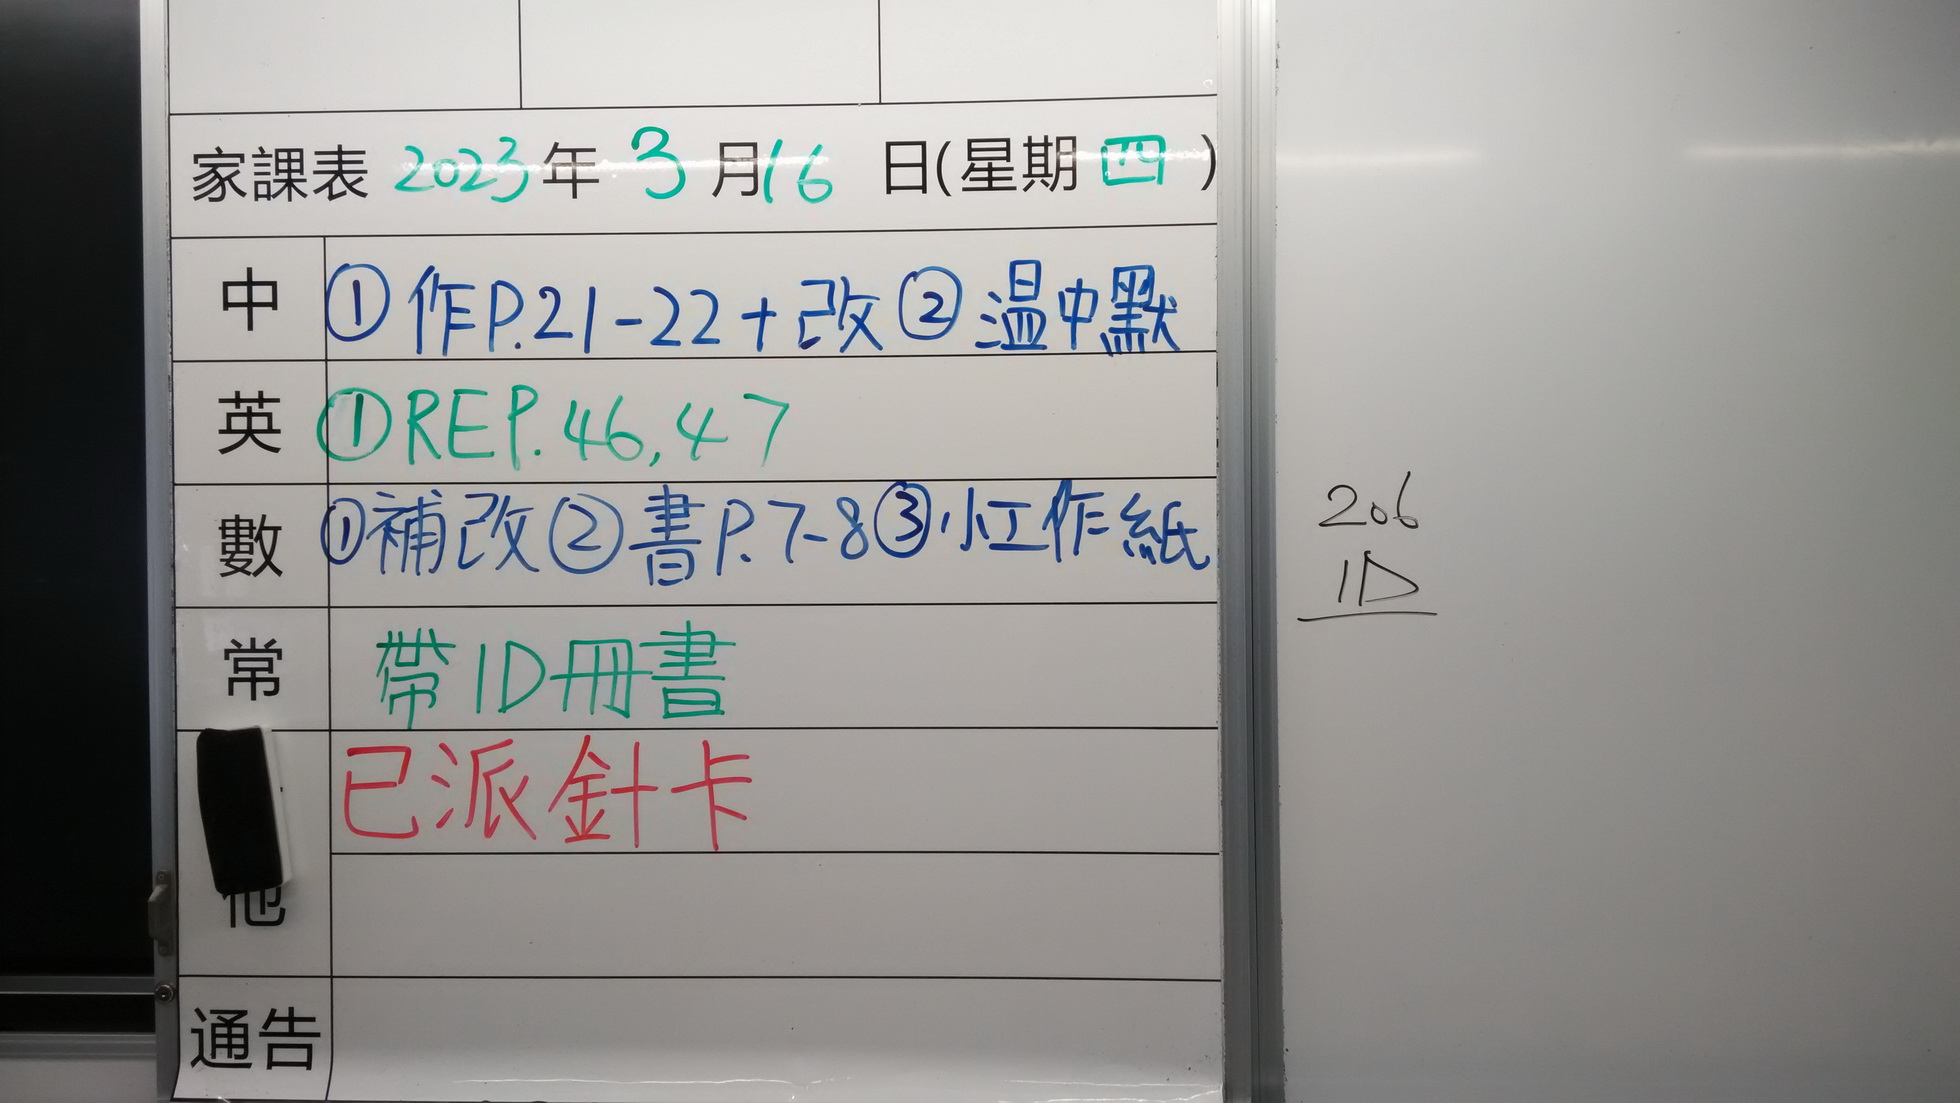 家課表 2023年 3月16日(星期四)
中 ①作P.21-22+改②温中默
英 ①REP.46,47
數 ①補改②書P.7-8③小工作紙
常 帶1D冊書
已派針卡
他
通告
206
1D